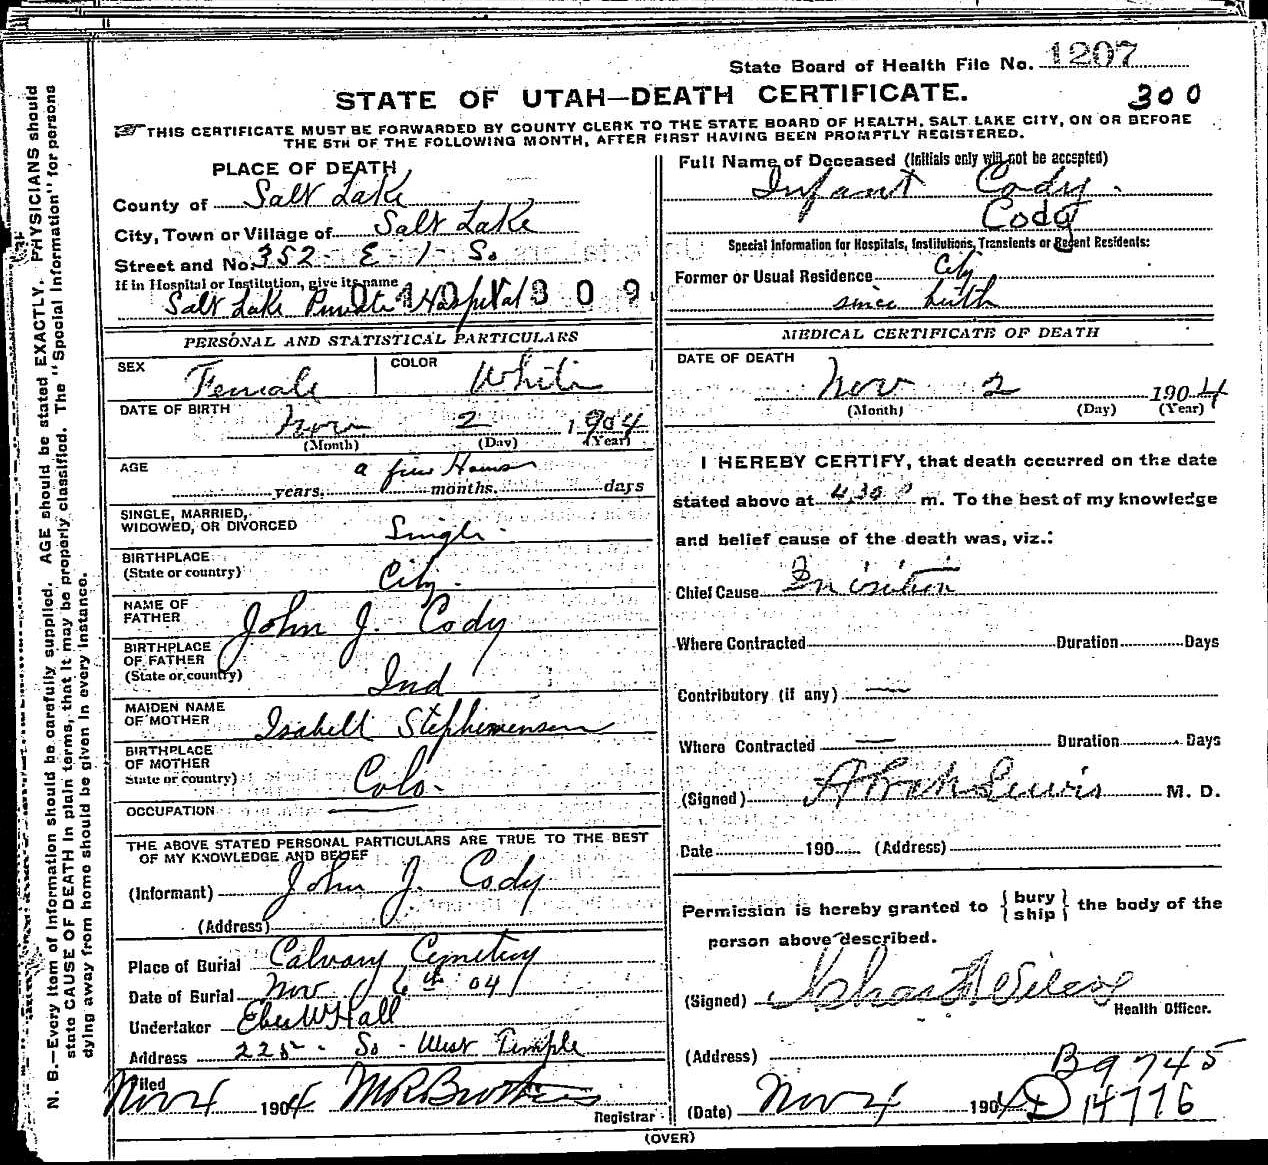 State Board of Health File No. 1207
STATE OF UTAH—DEATH CERTIFICATE.
300
THIS CERTIFICATE MUST BE FORWARDED BY COUNTY CLERK TO THE STATE BOARD OF HEALTH, SALT LAKE CITY, ON OR BEFORE
THE 5TH OF THE FOLLOWING MONTH, AFTER FIRST HAVING BEEN PROMPTLY REGISTERED.
PLACE OF DEATH
County of Salt Lake
City, Town or Village of Salt Lake
Street and No. 352 E 1 So
If in Hospital or Institution, give its name
Salt Lake Private Hospital 309
PERSONAL AND STATISTICAL PARTICULARS
SEX Female COLOR White
DATE OF BIRTH
Nov 2 1904
(Month) (Day) (Year)
AGE a few Hours
years, months, days
SINGLE, MARRIED,
WIDOWED, OR DIVORCED Single.
BIRTHPLACE
(State or country) City.
NAME OF
FATHER John J. Cody
BIRTHPLACE
OF FATHER
(State or country) Ind
MAIDEN NAME
OF MOTHER Isabell
BIRTHPLACE
OF MOTHER
State or country) Colo.
OCCUPATION
THE ABOVE STATED PERSONAL PARTICULARS ARE TRUE TO THE BEST
OF MY KNOWLEDGE AND BELIEF
(Informant) John J. Cody
(Address)
Place of Burial Calvary Cemetery
Date of Burial Nov 6th 04
Undertaker Eber W Hall
Address 225 - So - West Temple
Filed
Nov 4 1904
Registrar
Full Name of Deceased (Initials only will not be accepted)
Infant Cody.
Cody
Special Information for Hospitals, Institutions, Transients or Recent Residents:
Former or Usual Residence City
since birth
MEDICAL CERTIFICATE OF DEATH
DATE OF DEATH
Nov 2 1904
(Month) (Day) (Year)
I HEREBY CERTIFY, that death occurred on the date
stated above at 4.30 P m. To the best of my knowledge
and belief cause of the death was, viz.:
Chief Cause Inanition
Where Contracted Duration Days
Contributory (if any) —
Where Contracted — Duration Days
(Signed) Lewis M. D.
Date 190 (Address)
Permission is hereby granted to { bury ship } the body of the
person above described.
(Signed)
Health Officer.
(Address)
B 9745
(Date) Nov 4 1904 D 14776
(OVER)
N. B.—Every item of information should be carefully supplied. AGE should be stated EXACTLY. PHYSICIANS should
state CAUSE OF DEATH in plain terms, that it may be properly classified. The "Special Information" for persons
dying away from home should be given in every instance.